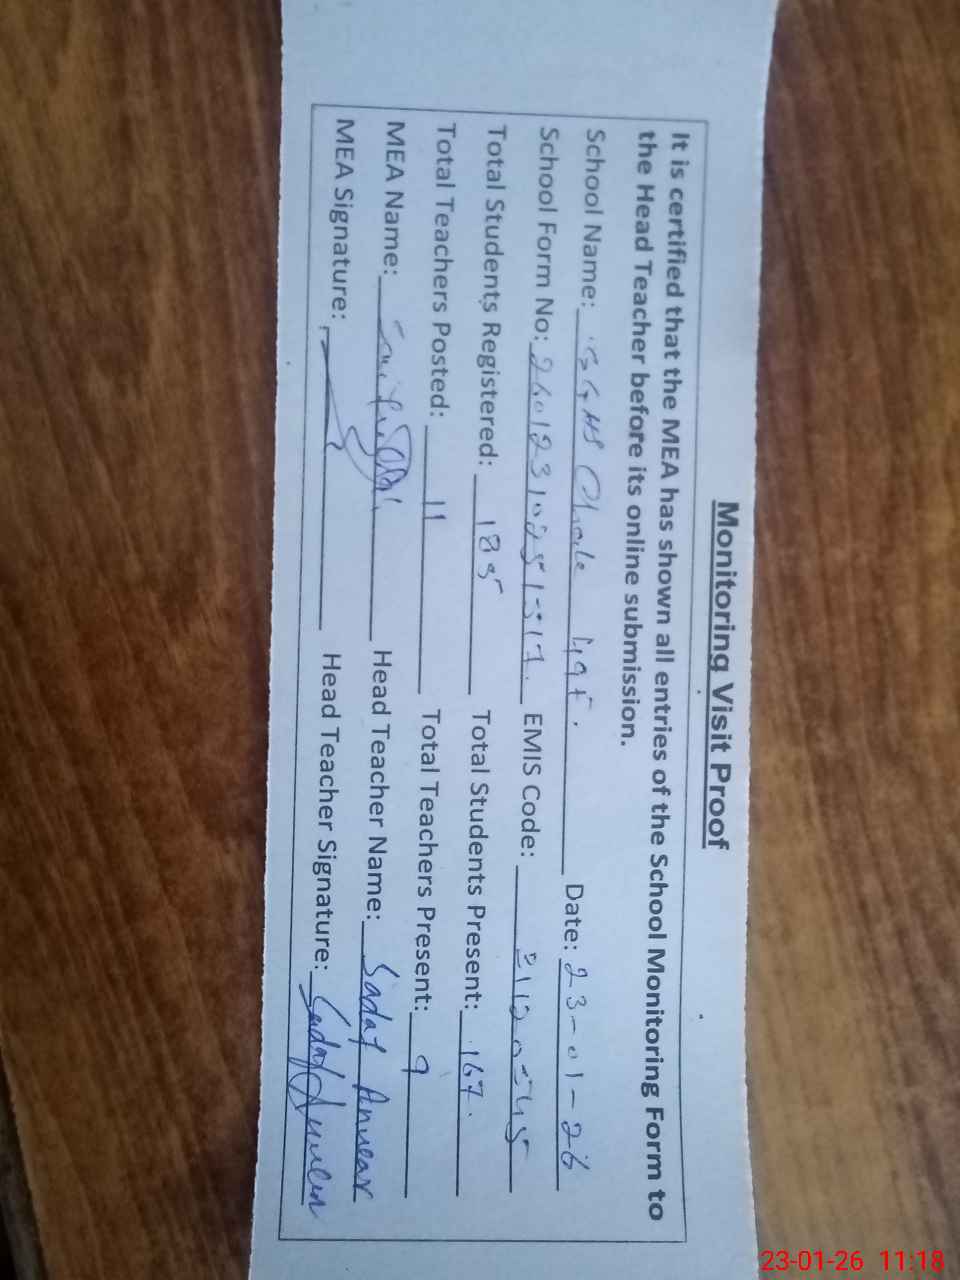 Monitoring Visit Proof
It is certified that the MEA has shown all entries of the School Monitoring Form to
the Head Teacher before its online submission.
School Name: GGHS Date: 23-01-26
School Form No: EMIS Code:
Total Students Registered: 185 Total Students Present: 167.
Total Teachers Posted: 11 Total Teachers Present: 9
MEA Name: Head Teacher Name: Sadaf Anwar
MEA Signature: Head Teacher Signature: Sadaf
23-01-26 11:18